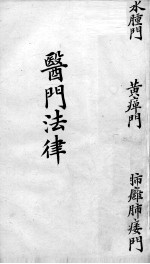 水腫門
黃癉門
肺癰肺痿門
醫門法律